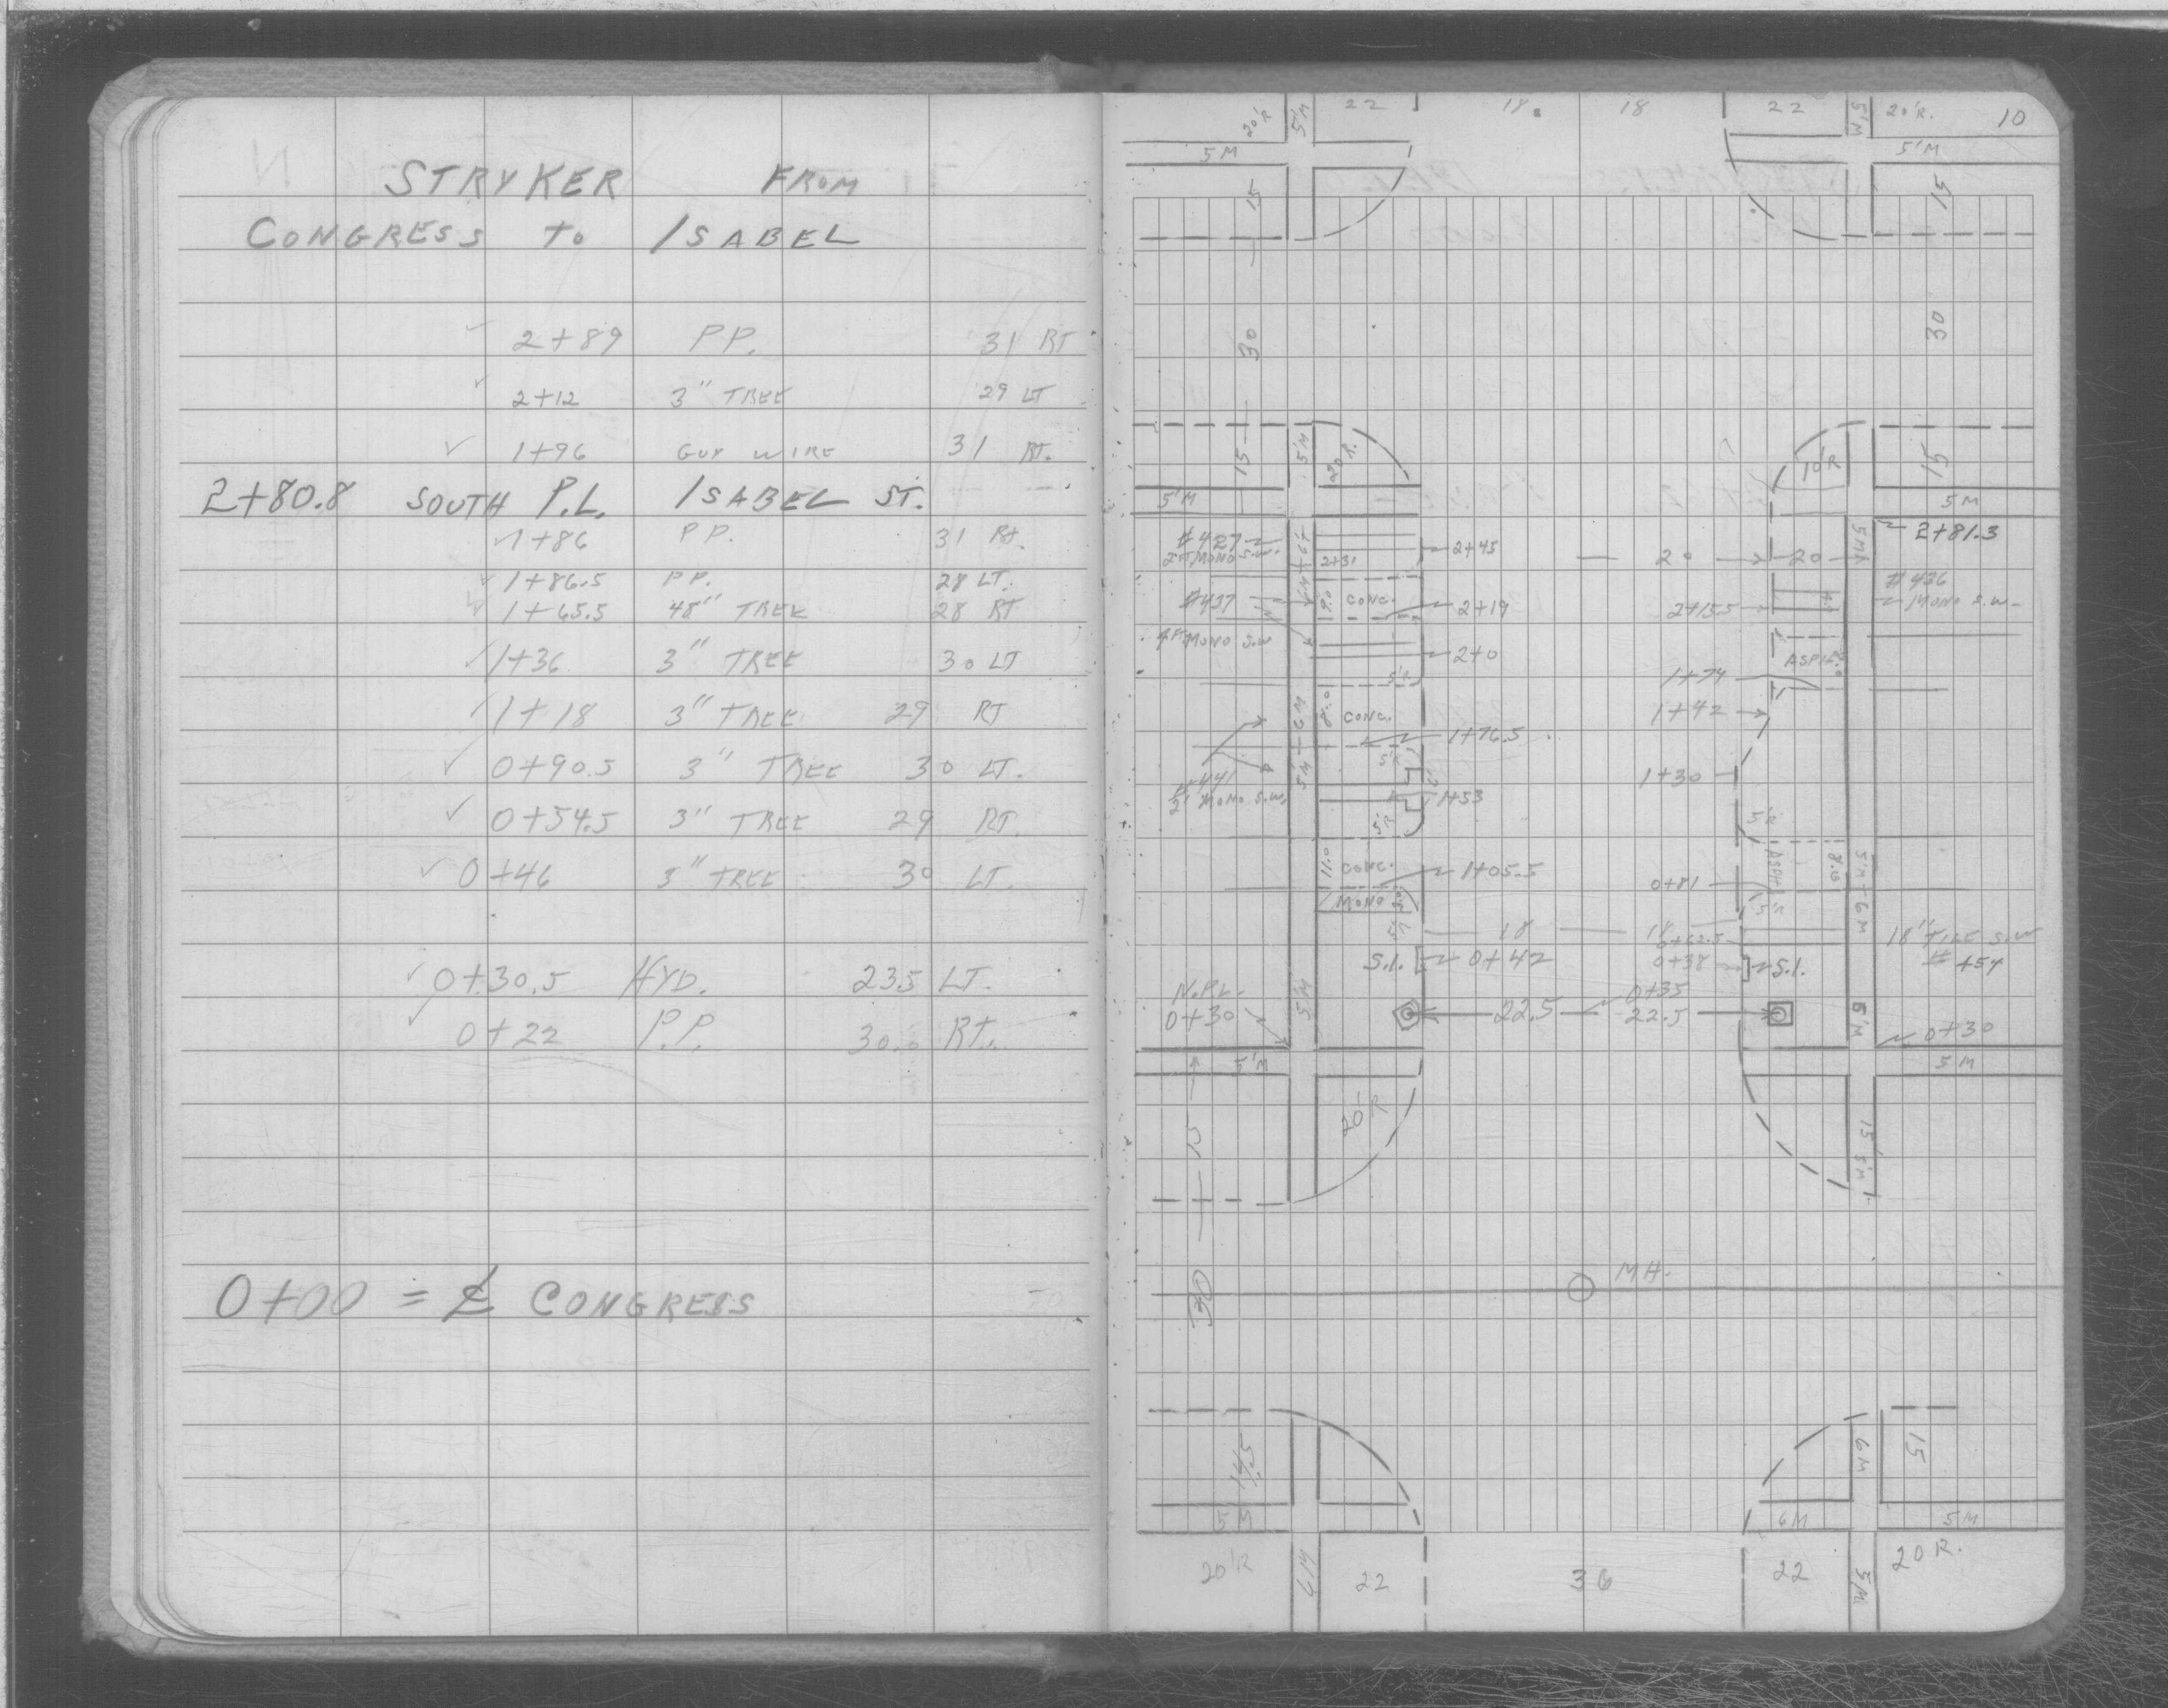 STRYKER FROM
CONGRESS to ISABEL
2+89 P.P. 31 RT
2+12 3" TREE 29 LT
1+96 GUY WIRE 31 RT.
2+80.8 SOUTH P.L. ISABEL ST.
1+86 P.P. 31 Rt.
1+86.5 P.P. 28 LT.
1+65.5 48" TREE 28 RT
1+36 3" TREE 30 LT
1+18 3" TREE 29 RT
0+90.5 3" TREE 30 LT.
0+54.5 3" TREE 29 RT.
0+46 3" TREE 30 LT.
0+30.5 HYD. 23.5 LT.
0+22 P.P. 30.0 RT.
0+00 = ℄ CONGRESS
20'R 5'M 22 18. 18 22 5'M 20'R. 10
5 M 5'M
15 15
30 30
15 5'M 20'R. 10'R 15
5'M 5 M
#427 2+45 2+81.3
2 FT MONO S.W. 2+31 20 20
#437 9.0 CONC. 2+19 2+15.5 #426
MONO S.W.
4 FT MONO S.W 2+0
5'R ASPH. 1+74
8.0 CONC. 1+42
1+76.5
5'R 1+30
#441
2' MONO S.W. 1+53
5'R 5'R
11.0 CONC. 1+05.5 0+81 ASPH 8.0 5 M - 6 M
MONO 5'R
18 18 18" TILE S.W
0+62.5 #454
S.I. 0+42 0+38 S.I.
N.P.L. 5'M 0+35
0+30 22.5 22.5 0+30
5'M 5 M
15 20'R 15 5'M
30 M.H.
14.5 6 M 15
5 M 6M 5 M
20'R 6M 22 36 22 5M 20 R.